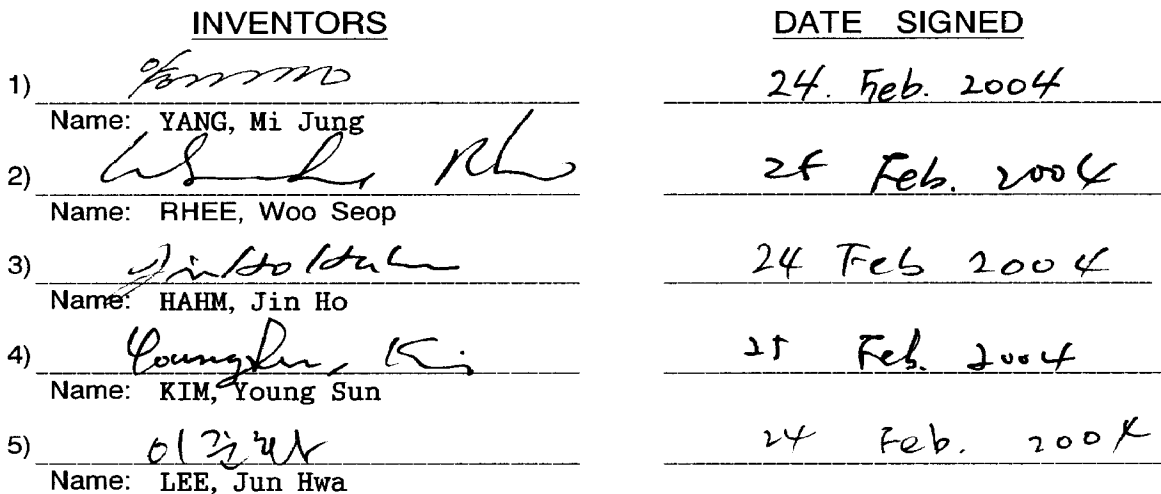 INVENTORS DATE SIGNED
1) 24. Feb. 2004
Name: YANG, Mi Jung
2) Rhee 25 Feb. 2004
Name: RHEE, Woo Seop
3) Jin Ho Hahm 24 Feb 2004
Name: HAHM, Jin Ho
4) Young Sun, Kim 25 Feb. 2004
Name: KIM, Young Sun
5) 이준화 24 Feb. 2004
Name: LEE, Jun Hwa